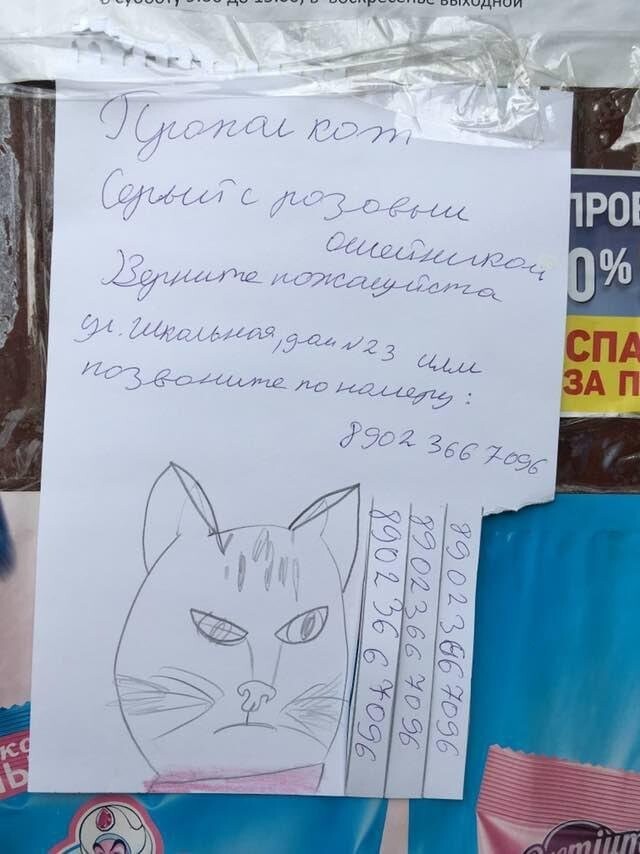 в субботу 9.00 до 15.00, в воскресенье выходной
Пропал кот
Серый с розовым
ошейником
Верните пожалуйста
ул. Школьная, дом №23 или
позвоните по номеру:
8902 366 7096
8902 366 7096
8902 366 7096
8902 366 7096
ПРОВ
0%
СПА
ЗА П
Premium